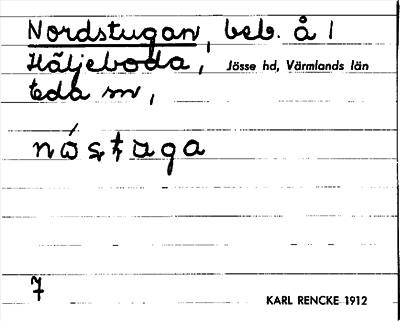 Nordstugan, beb. å 1
Häljeboda, Jösse hd, Värmlands län
Eda sn,
nǿstuga
7
KARL RENCKE 1912